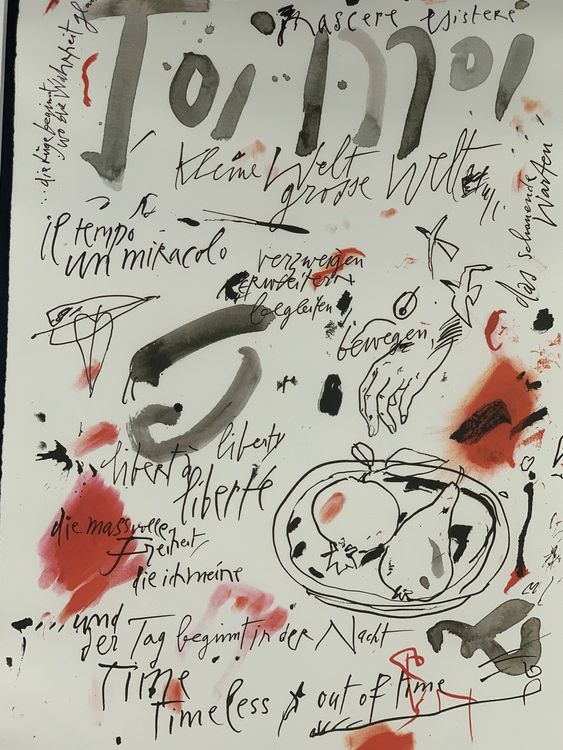 nascere esistere
Toi moi
die Lüge beginnt
wo die Wahrheit
kleine Welt
grosse Welt
das schauende
Warten
il tempo
un miracolo
verzweigen
erweitern
begleiten
bewegen
libertà liberty
liberté
die massvolle
Freiheit
die ich meine
und
der Tag beginnt in der Nacht
Time
Timeless
out of time